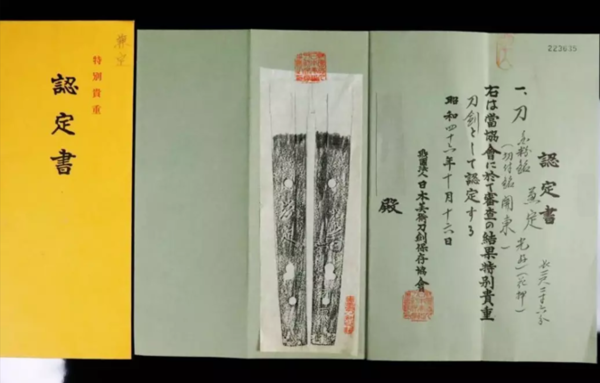 特別貴重
認定書
223635
認定書
一、刀 粉銘 兼定 (花押)
(切付銘 関東一)
長二尺二寸六分
右は當協會に於て審査の結果特別貴重
刀劍として認定する
昭和四十六年十月十六日
財團法人日本美術刀劍保存協會
殿